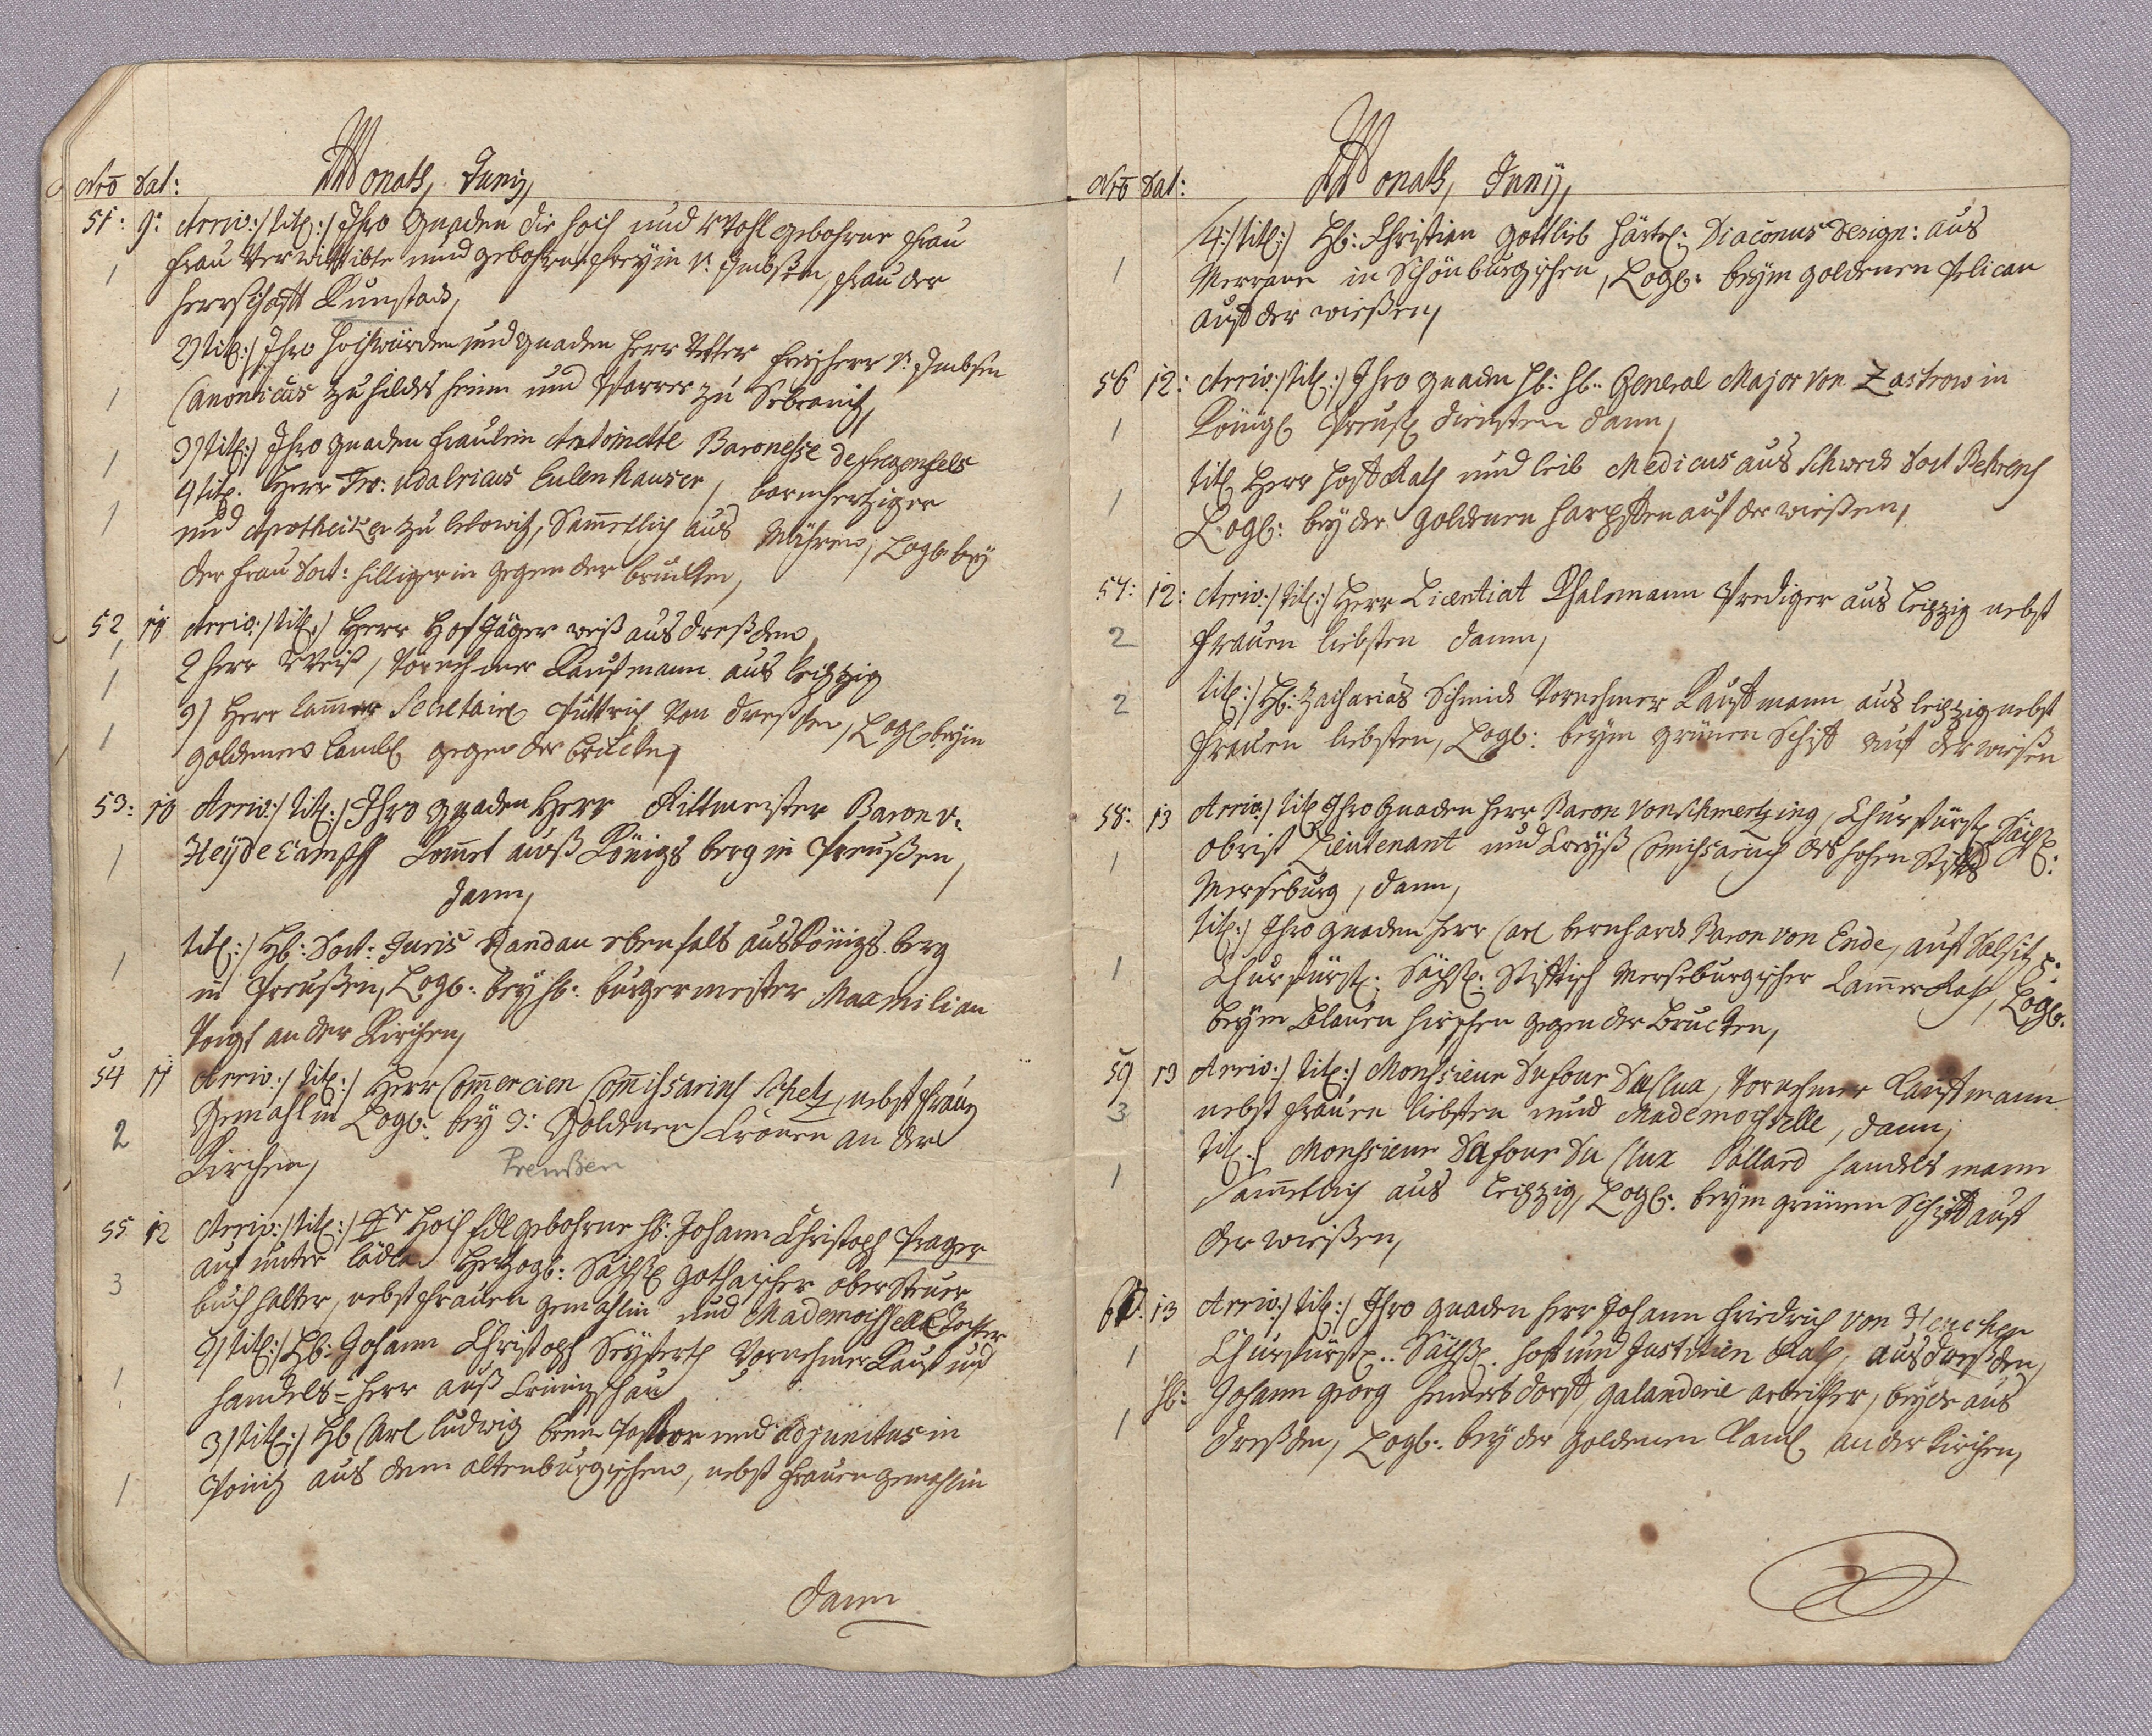 Nro Dat: Monath, Juny,
51: 9: Arriv:/ titl:/ Ihro Gnaden die Hoch und Wohl gebohrne Frau
1 Frau Verwittibte und gebohrne Freyin v: Imbsen, Frau der
Herrschafft Kunstadt,
2) titl:/ Ihro Hochwürden und Gnaden Herr Vetter, Freyherr v: Imbsen
1 Canonicus zu Hildesheim und Pfarrer zu
1 3) titl:/ Ihro Gnaden Fraulein Antoinette Baronesse de
4 titl: Herr Udalricus Eulenhauser, barmhertziger
1 und Apothecker zu letowitz, Sammetlich aus Mähren, Logb: bey
der Frau Doct: Hilligerin gegen der brucken,
52 10 Arriv:/ titl:/ Herr Hof Jäger weiß aus dreßden,
1
1 2 Herr Weiß, Vornehmer Kaufmann aus leipzig
3) Herr Cammer Secretaire Püttrich Von dreßden, Logb: beym
1 goldenen Lamb gegen der brücken,
53: 10 Arriv:/ titl:/ Ihro Gnaden Herr Rittmeister Baron v:
1 Heydecampff komt auß Königsberg in Preußen,
dann,
titl:/ Hl: Doct: Juris Randau ebenfals aus Königsberg
1 in Preußen, Logb: bey Hl: burgermeister Maximilian
Voigt an der Kirchen,
54 11 Arriv:/ titl:/ Herr Commercien Commissarius Schetz, nebst Frau
2 Gemahlin Logb: bey d: Goldenen Cronen an der
Kirchen,
Preußen
55 12 Arriv:/ titl:/ Hoch Edl gebohrne Hl: Johann Christoph Prager
auf unter lödla Hertzogl: Sächß Gothaischer ober Steuer
3 buchhalter, nebst Frauen Gemahlin und Mademoisselle Tochter
2) titl:/ Hl: Johann Christoph Seyfferth Vornehmer Kauf und
1 Handels-Herr auß Crimizschau
3/ titl:/ Hl Carl Ludwig Pastor und Adjunctus in
1 Ponitz aus dem altenburgischen, nebst Frauen Gemahlin
dann
Nro Dat: Monath, Juny,
4:/ titl:/ Hl: Christian Gottlieb Härtel: Diaconus Design: aus
1 Merrane in Schönburgischen, Logb: beym goldenen Pelican
auf der wießen,
56 12: Arriv:/ titl:/ Ihro Gnaden Hl: Hl: General Major von Zastrow in
1 Königl Preuß diensten dann,
titl Herr Hoff Rath und leib Medicus aus Schwedt Doct Behrens
1 Logb: bey der goldenen Harpffen auf der wießen,
57: 12: Arriv:/ titl:/ Herr Licentiat Thalemann Prediger aus leipzig nebst
2 Frauen liebsten dann,
2 titl:/ Hl: Zacharias Schmidt Vornehmer Kauffmann aus leipzig nebst
Frauen liebsten, Logb: beym grünen Schiff auf der wießen
58: 13 Arriv:/ titl Ihro Gnaden Herr Baron von Schmertzing, Churfürstl Sächß:
1 obrist Lieutenant und Creyß Comissarius des hohen Stiffts
Merseburg, dann,
titl:/ Ihro Gnaden Herr Carl bernhardt Baron von Ende, auf
1 Churfürstl: Sächß: Stifftisch Merseburgischer Cammer Rath, Logb:
beym Blauen Hirschen gegen der Brucken,
59 13 Arriv:/ titl:/ Monssieur Dufour Vornehmer Kauffmann
3 nebst Frauen liebsten und Mademoisselle, dann,
titl:/ Monssieur Dufour Pallard Handelsmann
1 Sammetlich aus leipzig, Logb: beym grünen Schiff auf
der wießen,
60: 13 Arriv:/ titl:/ Ihro Gnaden Herr Johann Friedrich von
1 Churfürstl: Sächß: Hoff und Justitien Rath, aus dreßden,
Hl: Johann Georg Galanderie arbeither, beyde aus
1 dreßden, Logb: bey der goldenen Kanl an der Kirchen,